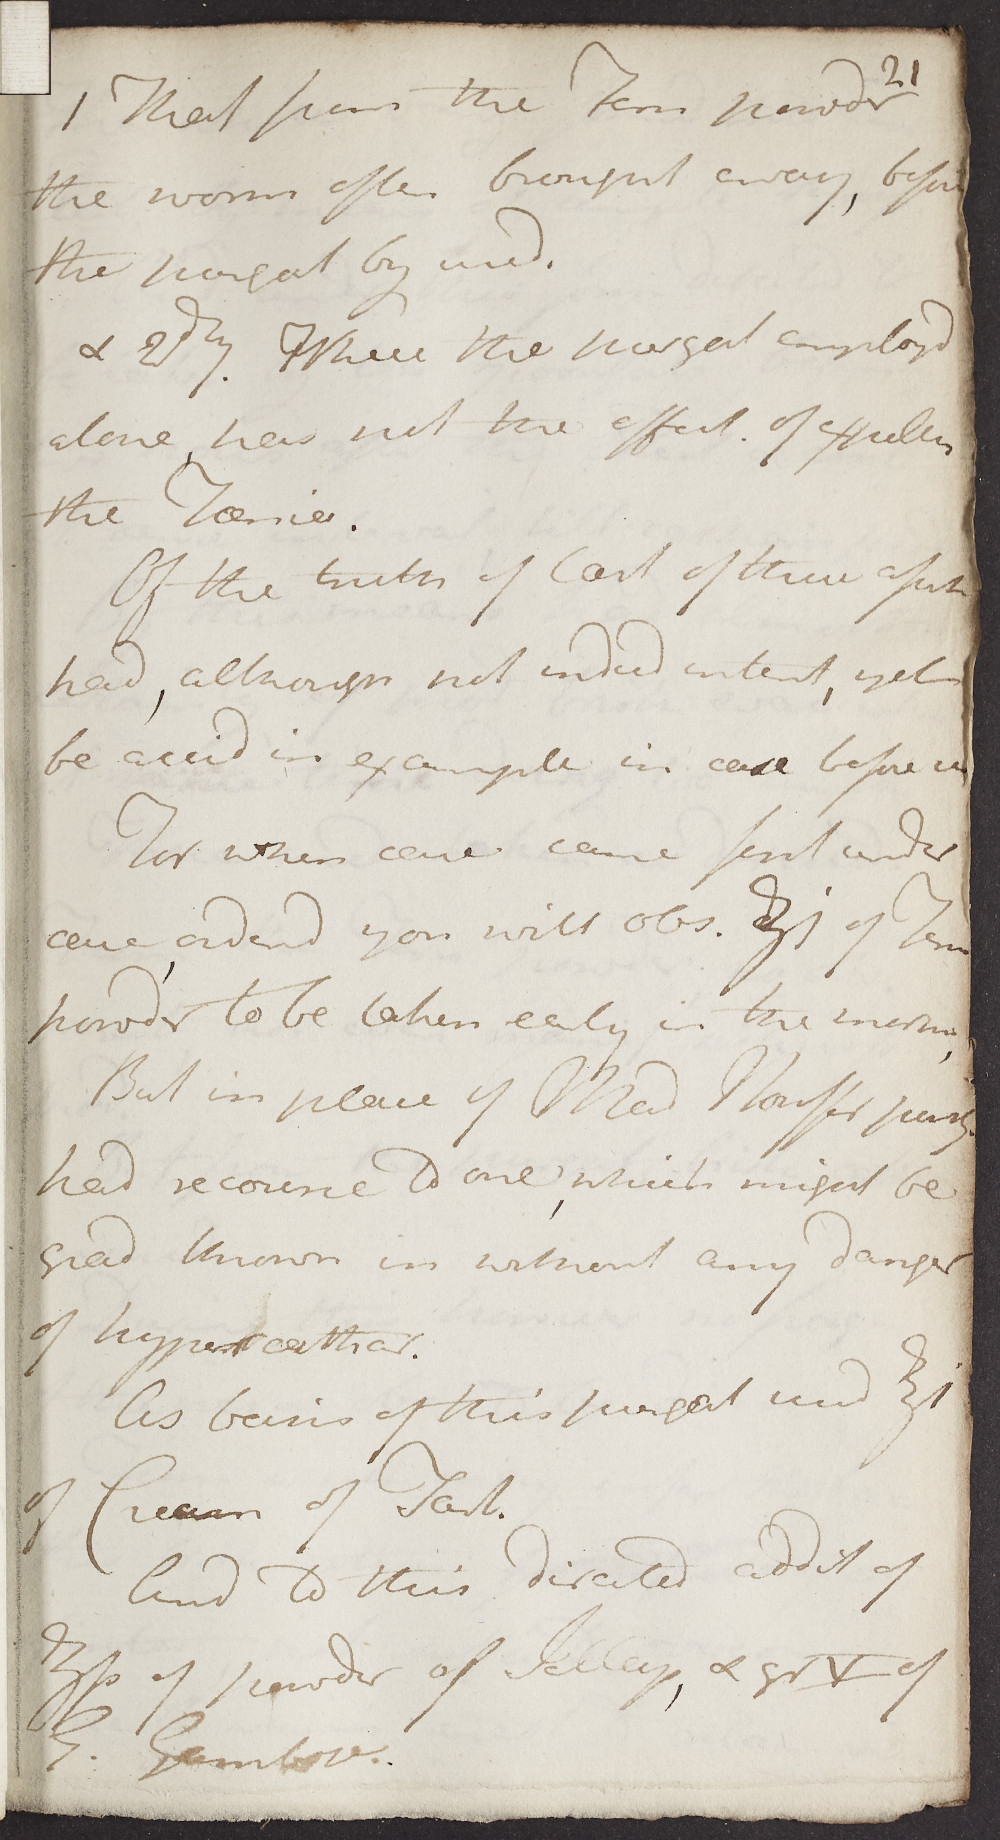 21
1 That from the Fern powdr
the worm often brought away, before
the purgat by used.
& 2dly. Where the purgat employd
alone, has not the effect. of expellin
the Taenia.
Of the truth of last of these
had, although not indeed intent, yet
be accid in example in case before us
For when case came first under
care, ordered you will obs. ʒj of Fern
powdr to be taken early in the mornin,
But in place of Mad Nouffer purg.
had recourse to one, which might be
grad thrown in without any danger
of hypercathar.
As basis of this purgat used ʒj
of Cream of Tart.
And to this directed addit of
ʒſs of powder of Jallap, & gr V of
G. Gambog.